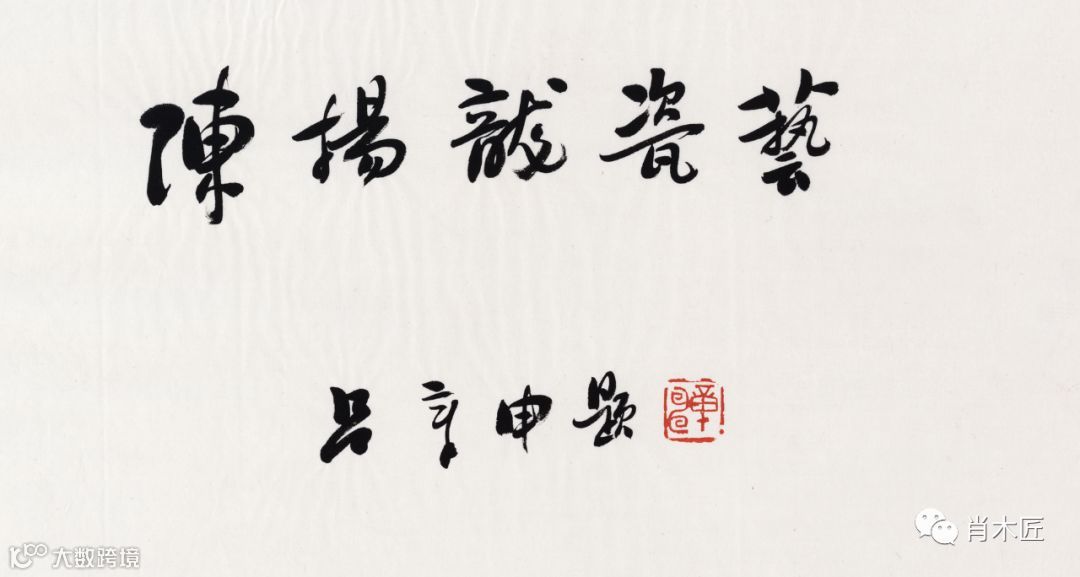 陳揚龍瓷藝
吕章申题
肖木匠
大数跨境